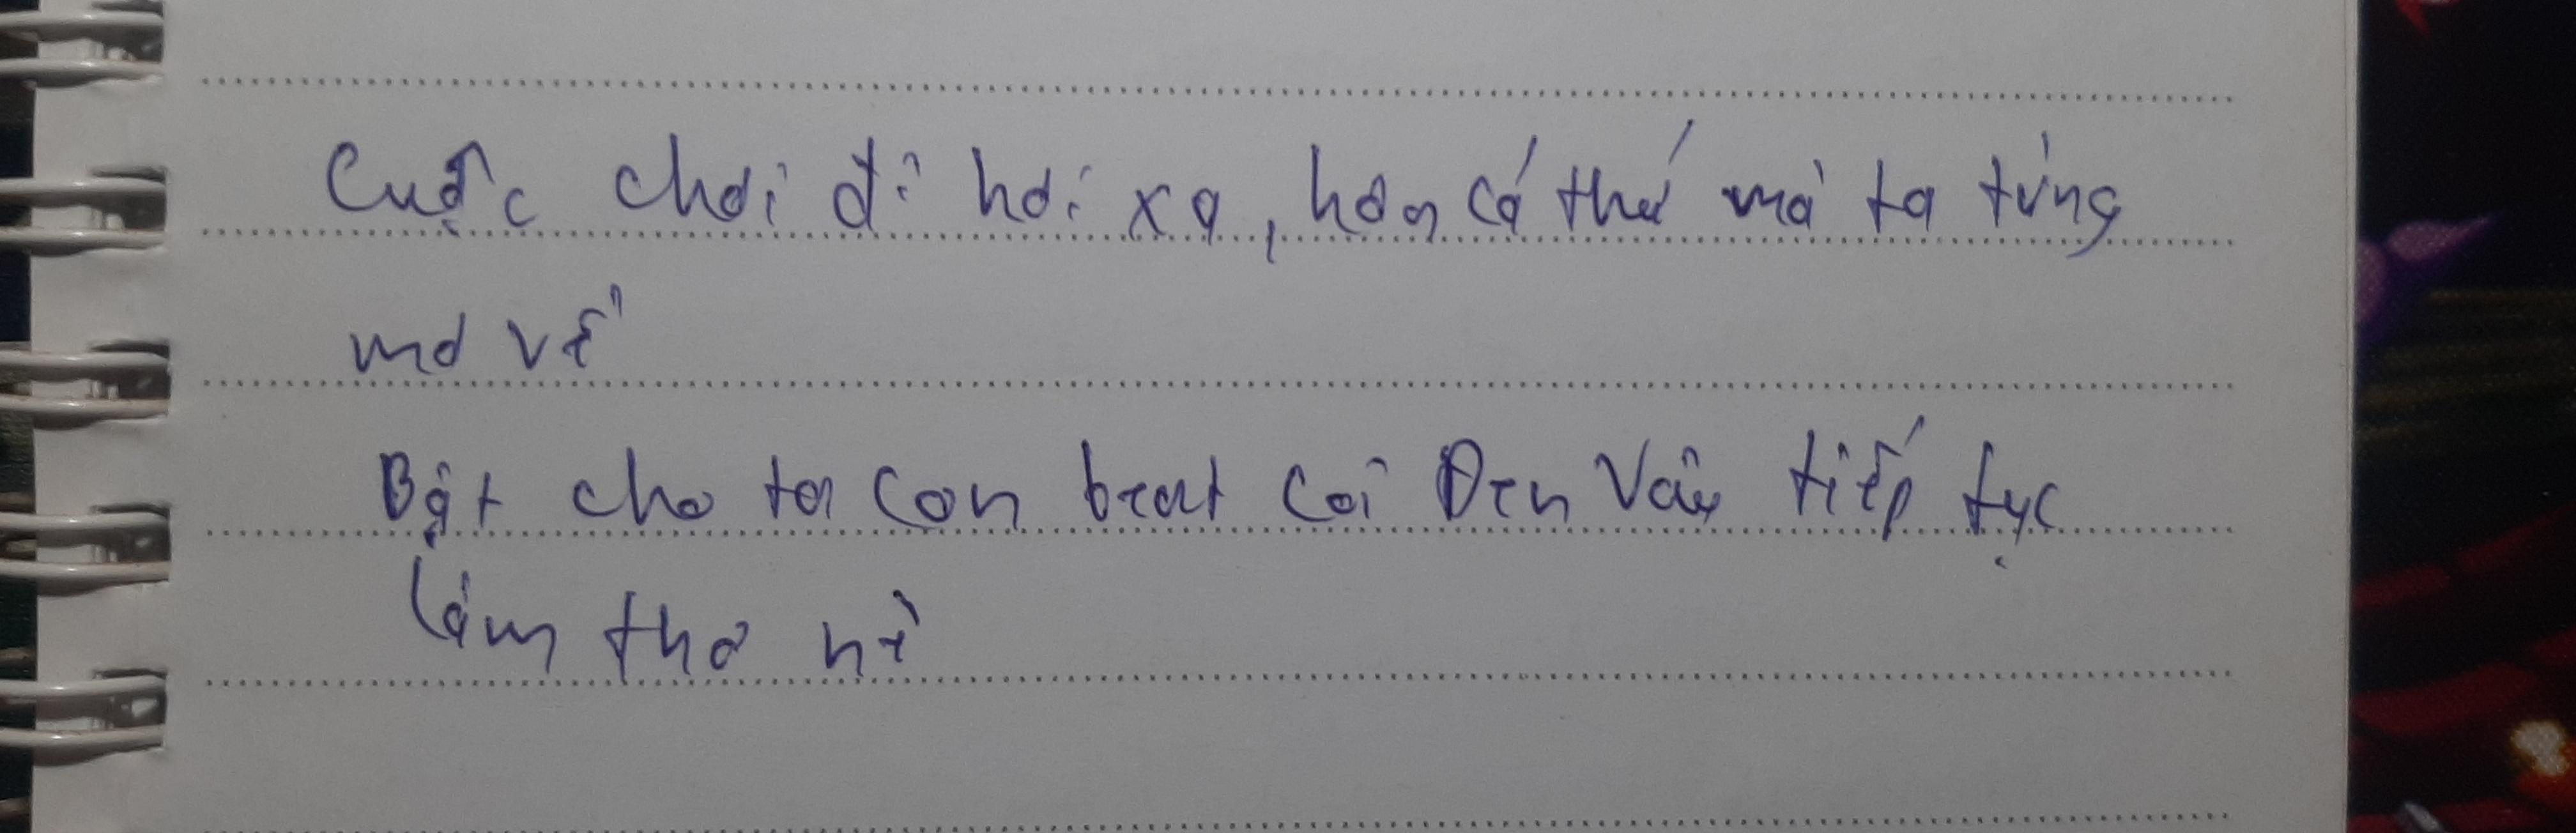 Cuộc chơi đi hơi xa, hơn cá thứ mà ta từng
mơ về
Bật cho ta con beat coi Đen Vâu tiếp tục
làm thơ nè